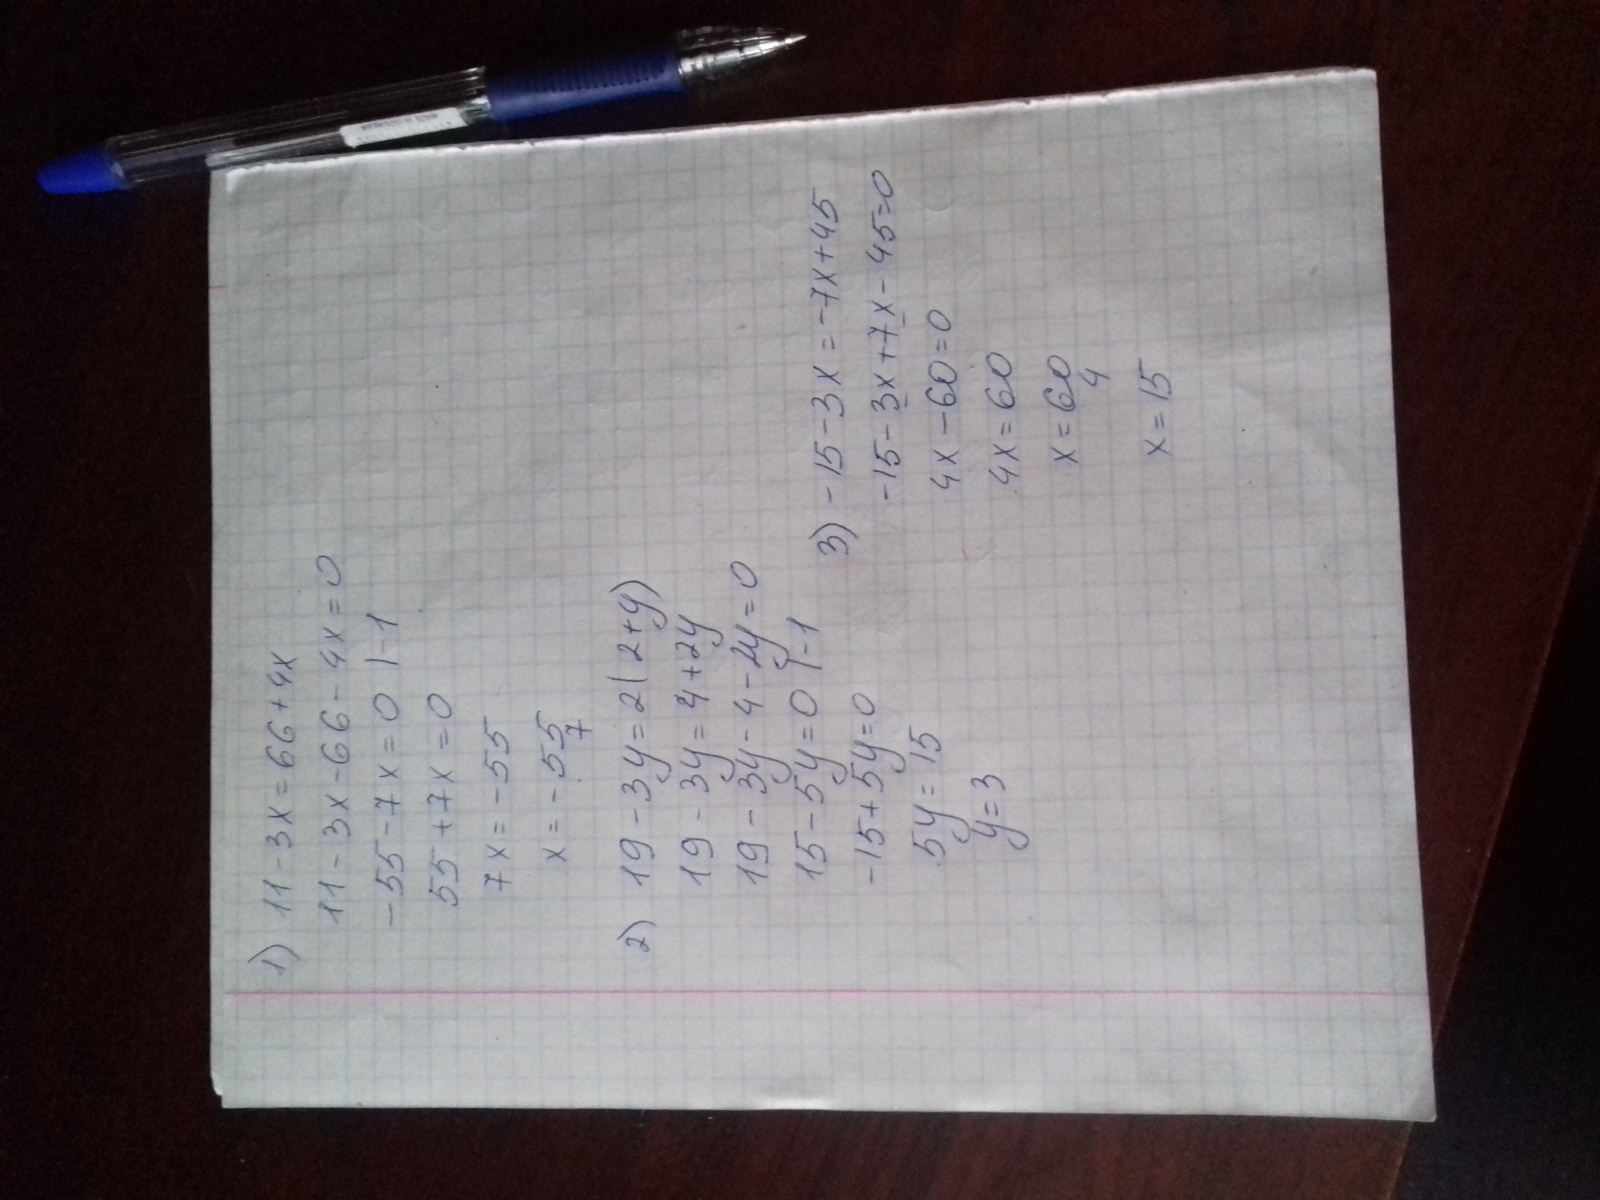 1) 11-3x=66+4x
11-3x-66-4x=0
-55-7x=0 |-1
55+7x=0
7x=-55
x=-55
7
2) 19-3y=2(2+y)
19-3y=4+2y
19-3y-4-2y=0
15-5y=0 |-1
-15+5y=0
5y=15
y=3
3) -15-3x=-7x+45
-15-3x+7x-45=0
4x-60=0
4x=60
x=60
4
x=15